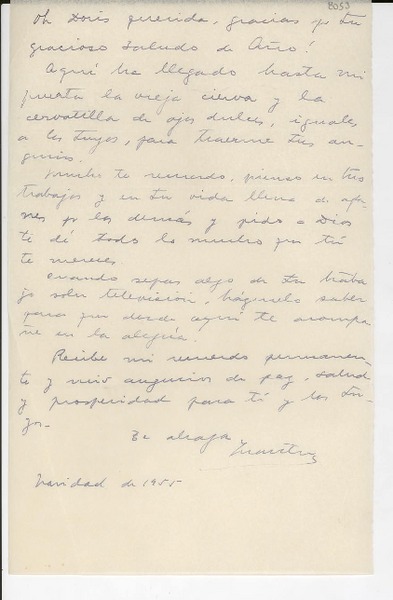 8053
Oh Doris querida, gracias p. tu
gracioso saludo de Año!
Aquí ha llegado hasta mi
puerta la vieja cierva y la
cervatilla de ojos dulces, iguales
a los tuyos, para traerme tus au-
gurios.
Mucho te recuerdo, pienso en tus
trabajos y en tu vida llena de afa-
nes p. los demás y pido a Dios
te dé todo lo mucho que tú
te mereces.
Cuando sepas algo de tu traba
jo sobre televisión, háganelo saber
para que desde aquí te acompa
ñe en la alegría.
Recibe mi recuerdo permanen-
te y mis augurios de paz, salud
y prosperidad para tí y los tu-
yos.
Te abraza
Navidad de 1955